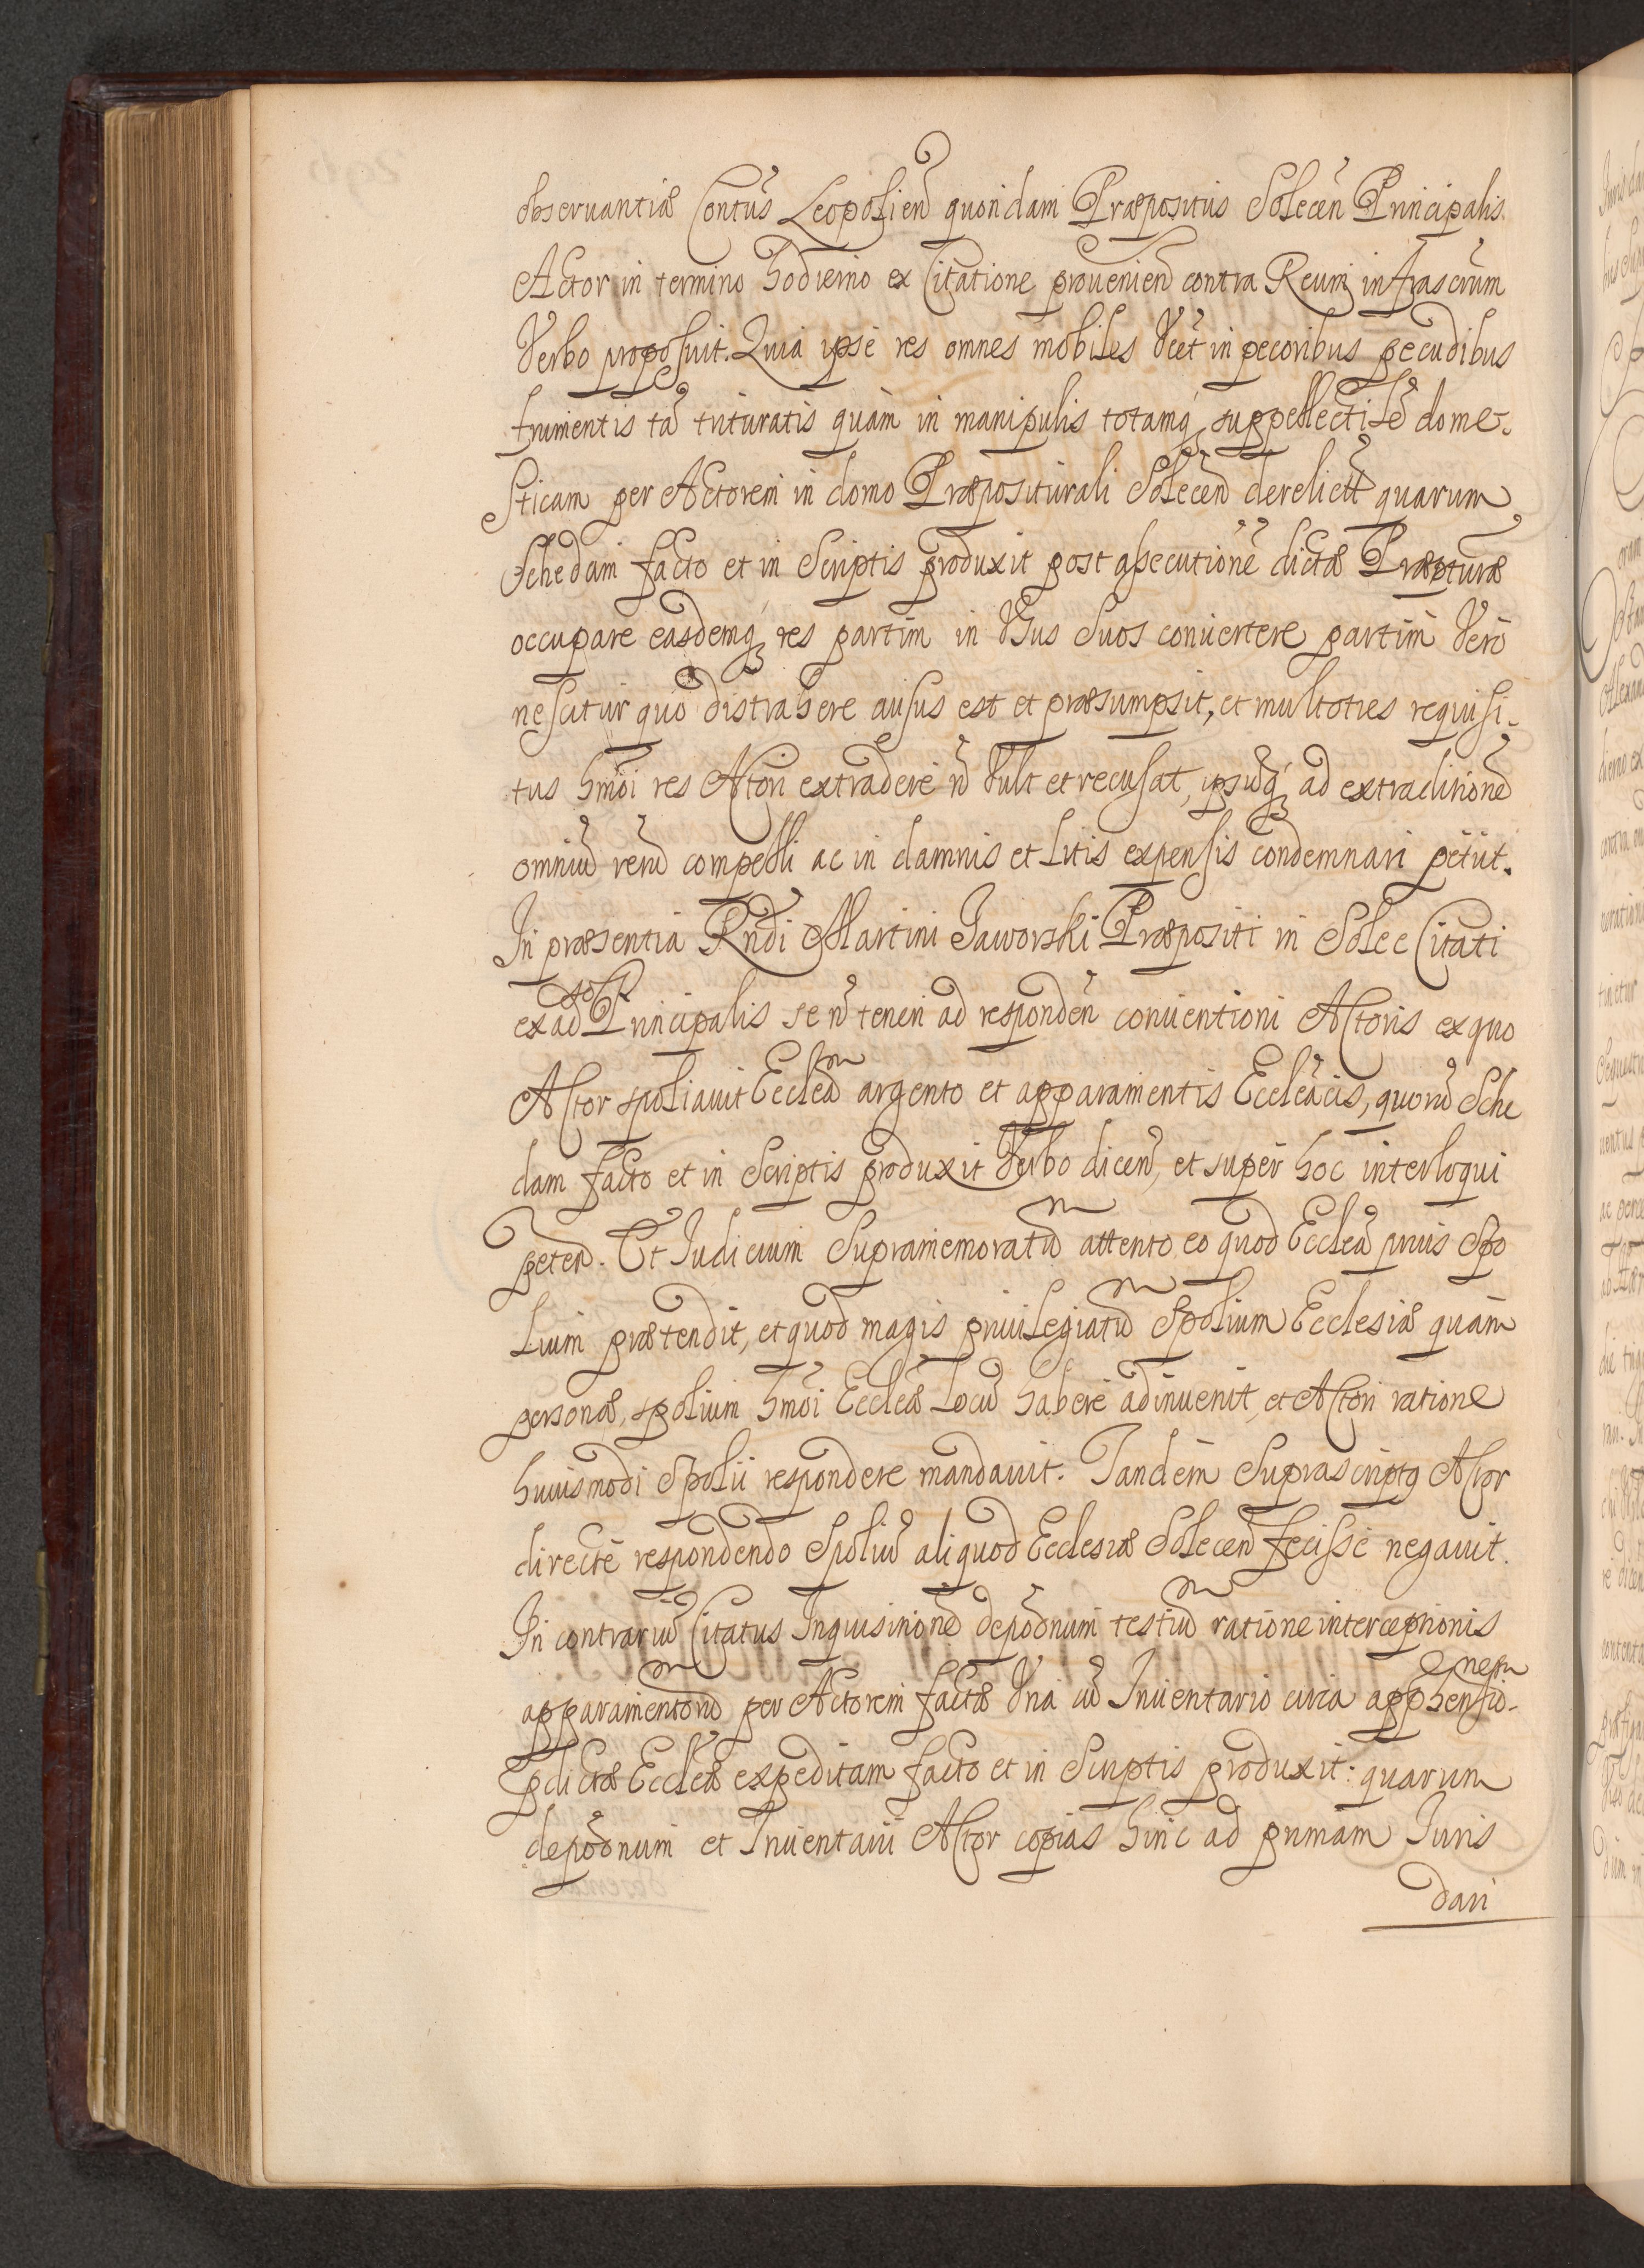 obseruantiæ Contus Leopolien quondam Præpositus Solecen Principalis
Actor in termino hodierno ex Citatione prouenien contra Reum infrascrum
Verbo proposuit. Quia ipse res omnes mobiles Vcet in pecoribus pecudibus
frumentis ta trituratis quam in manipulis totamq suppellectile dome-
sticam per Actorem in domo Præpositurali Solecen derelict quarum
Schedam facto et in Scriptis produxit post assecutione dictæ Præpturæ
occupare easdemq res partim in Vsus Suos conuertere partim Vero
nescitur quo distrahere ausus est et præsumpsit, et multoties requisi-
tus hmoi res Actori extradere n Vult et recusat, ipsuq ad extraditione
omniu reru compelli ac in damnis et Litis expensis condemnari petiit.
In præsentia Rndi Martini Jaworski Præpositi in Solec Citati
ex ad Principalis se n teneri ad responden conuentioni Actoris ex quo
Actor spoliauit Ecclea argento et apparamentis Eccleacis, quoru Sche
dam facto et in Scriptis produxit Verbo dicen, et super hoc interloqui
peten. Et Judicium Supramemoratu attento eo quod Ecclea prius Spo
Lium prætendit, et quod magis priuilegiatu Spolium Ecclesiæ quam
personæ, spolium hmoi Eccleæ Locu habere adinuenit, et Actori ratione
huiusmodi Spolii respondere mandauit. Tandem Suprascriptq Actor
directe respondendo Spoliu aliquod Ecclesiæ Solecen fecisse negauit.
In contrariu Citatus Inquisitione depoonum testiu ratione interceptionis
apparamentoru per Actorem factæ Vna cu Inuentario circa apphensio-
nem
pdictæ Eccleæ expeditam facto et in Scriptis produxit: quarum
depoonum et Inuentarii Actor copias hinc ad primam Juris
dari